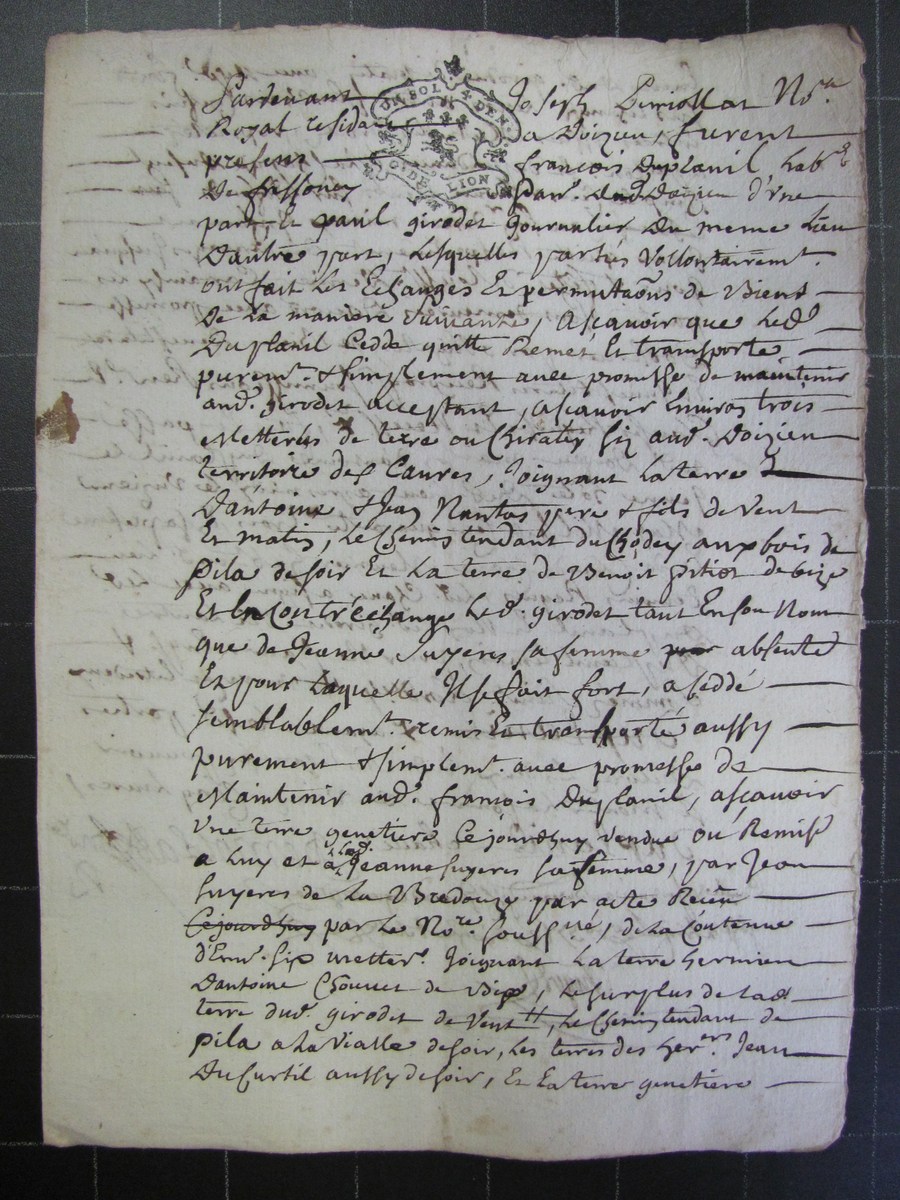 Pardevant Joseph Perrollat No.re
Royal reside a Doizieu, furent
presens françois Duplanil hab.t
De frassoney Parr. Dud. Doizieu d'Vne
part, Et paul girodet Journalier Du meme Lieu
Dautre part, Lesquelles partiés Vollontairem.t
ont fait Les Echanges Et permutaôns de Biens
De la maniere Suivante, Ascavoir que Led.
Duplanil Cedde quitte Remet Et transporte
purem.t & simplement avec promesse de maintenir
aud. girodet acceptant, ascavoir Environ trois
Metterés de terre ou Chirat siz aud. Doizieu
territoire des Cavres, Joignant La terre
D'antoine & Jean Nantas pere & fils de vent
Et matin, Le Chemin tendant du Chodey aux bois de
pila de soir Et La terre de Benoit de bize
Et En Contréchange Le d. girodet tant En son Nom
que de Jeanne Suyeres sa femme absente
Et pour Laquelle Il se fait fort, a seddé
semblablem.t remis Et transporté aussy
purement & simplem.t avec promesse de
Maintenir aud. françois Duplanil, ascavoir
Vne terre genetiere Cejourdhuy vendue ou Remise
a Luy et a Lad. Jeanne Suyeres sa femme, par Jean
Suyeres de La Bredouze par acte Receu
Cejourdhuy par Le No.re souss.né, de La Contenue
d'Env. six metter. Joignant La terre hermien
Dantoine Chouvet de Bize, Le surplus de Lad.
terre dud. girodet de Vent, Le Chemin tendant de
pila a La Vialle de soir, Les terres des her.ers Jean
Du Curtil aussy de soir, Et La terre genetiere
UN SOL 4 DEN.
G. DE LION